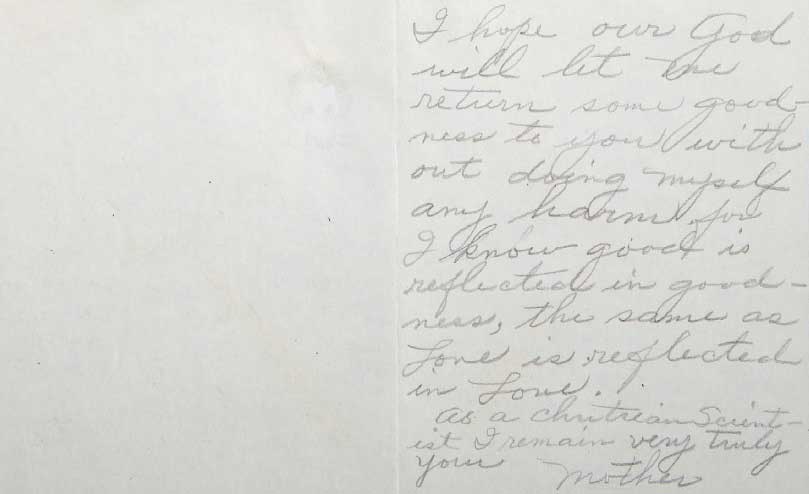 I hope our God
will let me
return some good-
ness to you with
out doing myself
any harm, for
I know good is
reflected in good-
ness, the same as
Love is reflected
in Love.
As a Chritsian Scient-
ist I remain very truly
your Mother